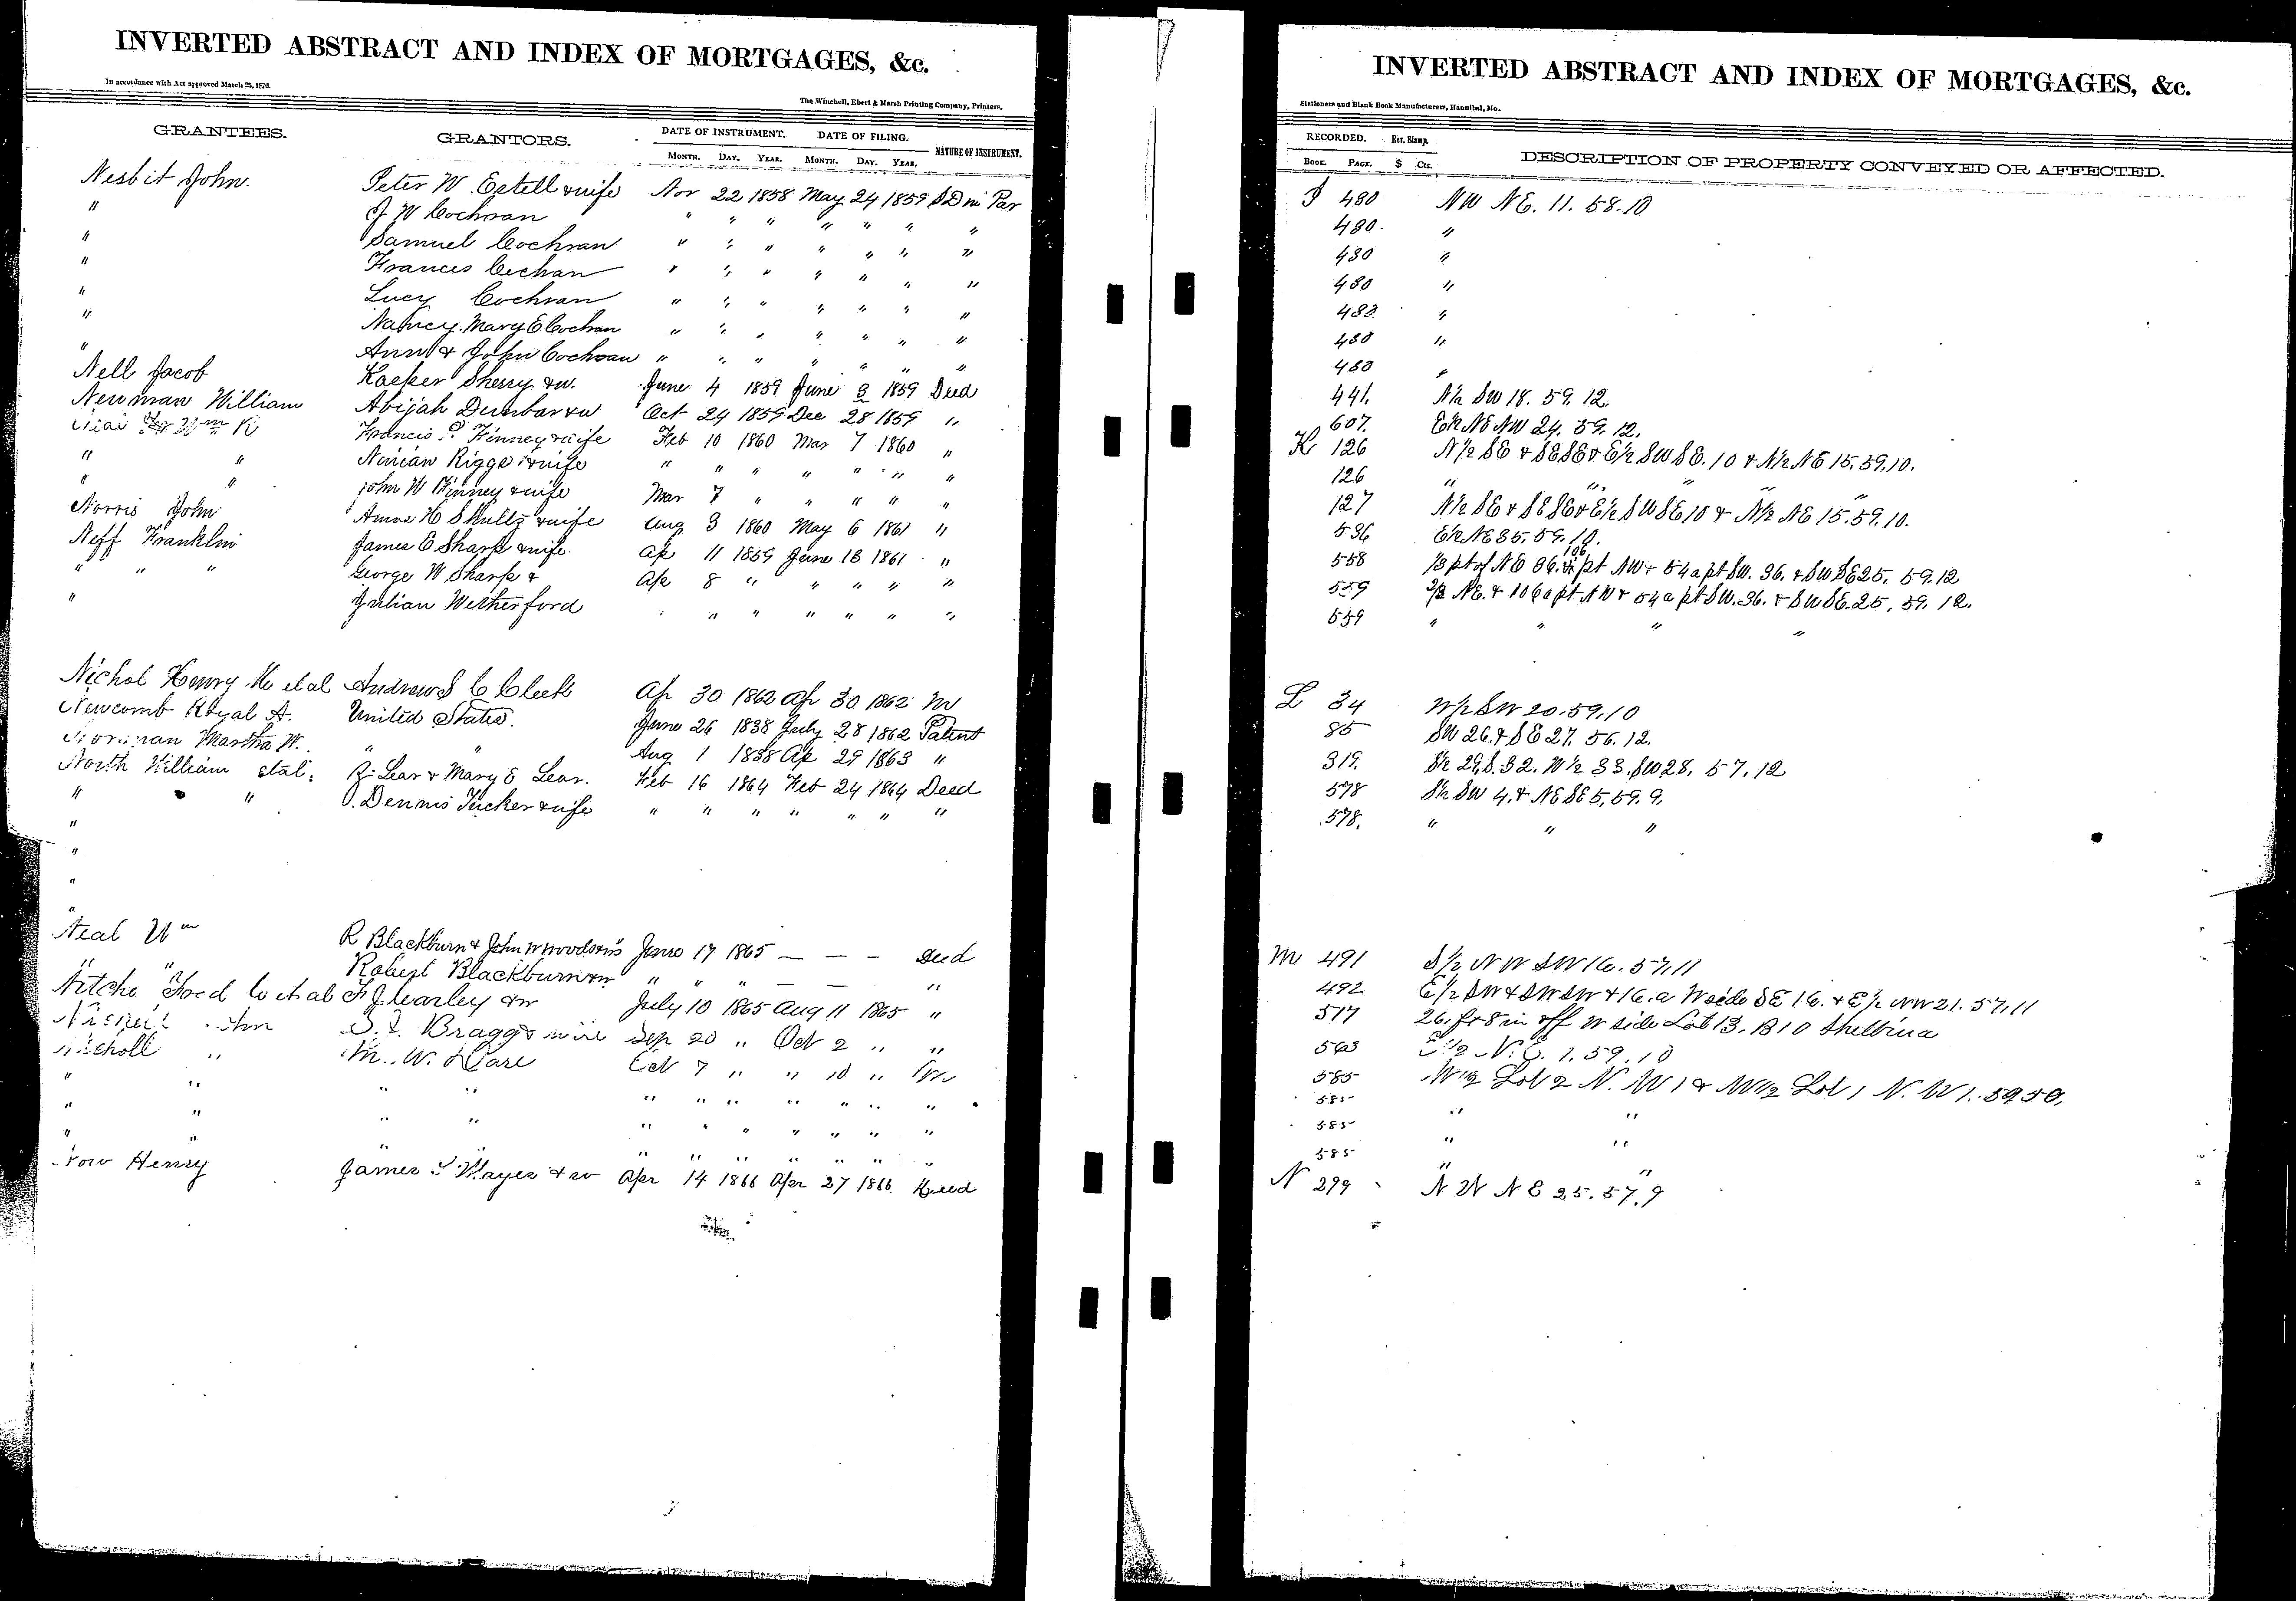 INVERTED ABSTRACT AND INDEX OF MORTGAGES, &c.
In accordance with Act approved March 25, 1870.
The Winchell, Ebert & Marsh Printing Company, Printers,
GRANTEES. GRANTORS. DATE OF INSTRUMENT. DATE OF FILING. NATURE OF INSTRUMENT.
MONTH. DAY. YEAR. MONTH. DAY. YEAR.
Nesbit John. Peter W. Estell & wife Nov 22 1858 May 24 1859 Par
" J W Cochran " " " " " " "
" Samuel Cochran " " " " " " "
" Frances Cochan " " " " " " "
" Lucy Cochran " " " " " " "
" Nancy. Mary E Cochran " " " " " " "
" Ann & John Cochran " " " " " " "
Nell Jacob Kasper Sherry & w. June 4 1859 June 8 1859 Deed
Newman William Abijah Dunbar & w Oct 24 1859 Dec 28 1859 "
Wm K Francis P. Finney & wife Feb 10 1860 Mar 7 1860 "
" " Ninian Riggs & wife " " " " " " "
" " John W Finney & wife Mar 7 " " " " "
Norris John Amos H Shultz & wife Aug 3 1860 May 6 1861 "
Neff Franklin James E Sharp & wife. Ap 11 1859 June 18 1861 "
" " " George W Sharp & Ap 8 " " " " "
" Julian Wetherford " " " " " "
Nichol Henry et al Andrew S C Cleek Ap 30 1862 Ap 30 1862 M
Newcomb Royal A. United States. June 26 1838 July 28 1862 Patent
Norman Martha W. " " Aug 1 1838 Ap 29 1863 "
North William etal. Lear & Mary E Lear. Feb 16 1864 Feb 24 1864 Deed
" " Dennis Tucker & wife " " " " " " "
"
"
"
"
Neal Wm R Blackburn & John W June 17 1865 — — — Deed
" " Robert Blackburn " " " — — — "
et al July 10 1865 Aug 11 1865 "
Braggs Sep 20 " Oct 2 " "
Nicholl " M. W. Oct 7 " " 10 "
" " " " " " " " " " "
" " " " " " " " " " "
" " " " " " " " " " "
Henry James Mayes & w Apr 14 1866 Apr 27 1866 Deed
INVERTED ABSTRACT AND INDEX OF MORTGAGES, &c.
Stationers and Blank Book Manufacturers, Hannibal, Mo.
RECORDED. Rev. Stamp. DESCRIPTION OF PROPERTY CONVEYED OR AFFECTED.
BOOK. PAGE. $ Cts.
480 NW NE. 11. 58. 10
480. "
480 "
480 "
480 "
480 "
480 "
441. N½ SW 18. 59. 12.
607. E½ NE NW 24. 59. 12.
K 126 N½ SE & SE SE & E½ SW SE. 10 & N½ NE 15. 59. 10.
126 " " " "
127 N½ SE & SE SE & E½ SW SE 10 & N½ NE 15. 59. 10.
536 E½ NE 35. 59. 10.
558 ⅓ pt of NE 36. 106 pt NW & 54 a pt SW. 36. & SW SE 25. 59. 12
559 NE. & 106 a pt NW & 54 a pt SW. 36. & SW SE. 25. 59. 12.
559 " " " "
L 34 W½ SW 20. 59. 10
85 SW 26. & SE 27. 56. 12.
319. S½ 29. S. 32. W½ 33. SW 28. 57. 12
578 S½ SW 4. & NE SE 5. 59. 9.
578. " " "
M 491 S½ NW SW 16. 57. 11
492 E½ SW & SW SW & 16. a W side SE 16. & E½ NW 21. 57. 11
517 26. ft 8 in off W side Lot 13. B 10 Shelbina
563 E½ N. E. 1. 59. 10
585 W½ Lot 2 N. W 1 & W½ Lot 1 N. W 1. 59
585 " "
585 " "
585 " "
N 299 N W N E 25. 57. 9